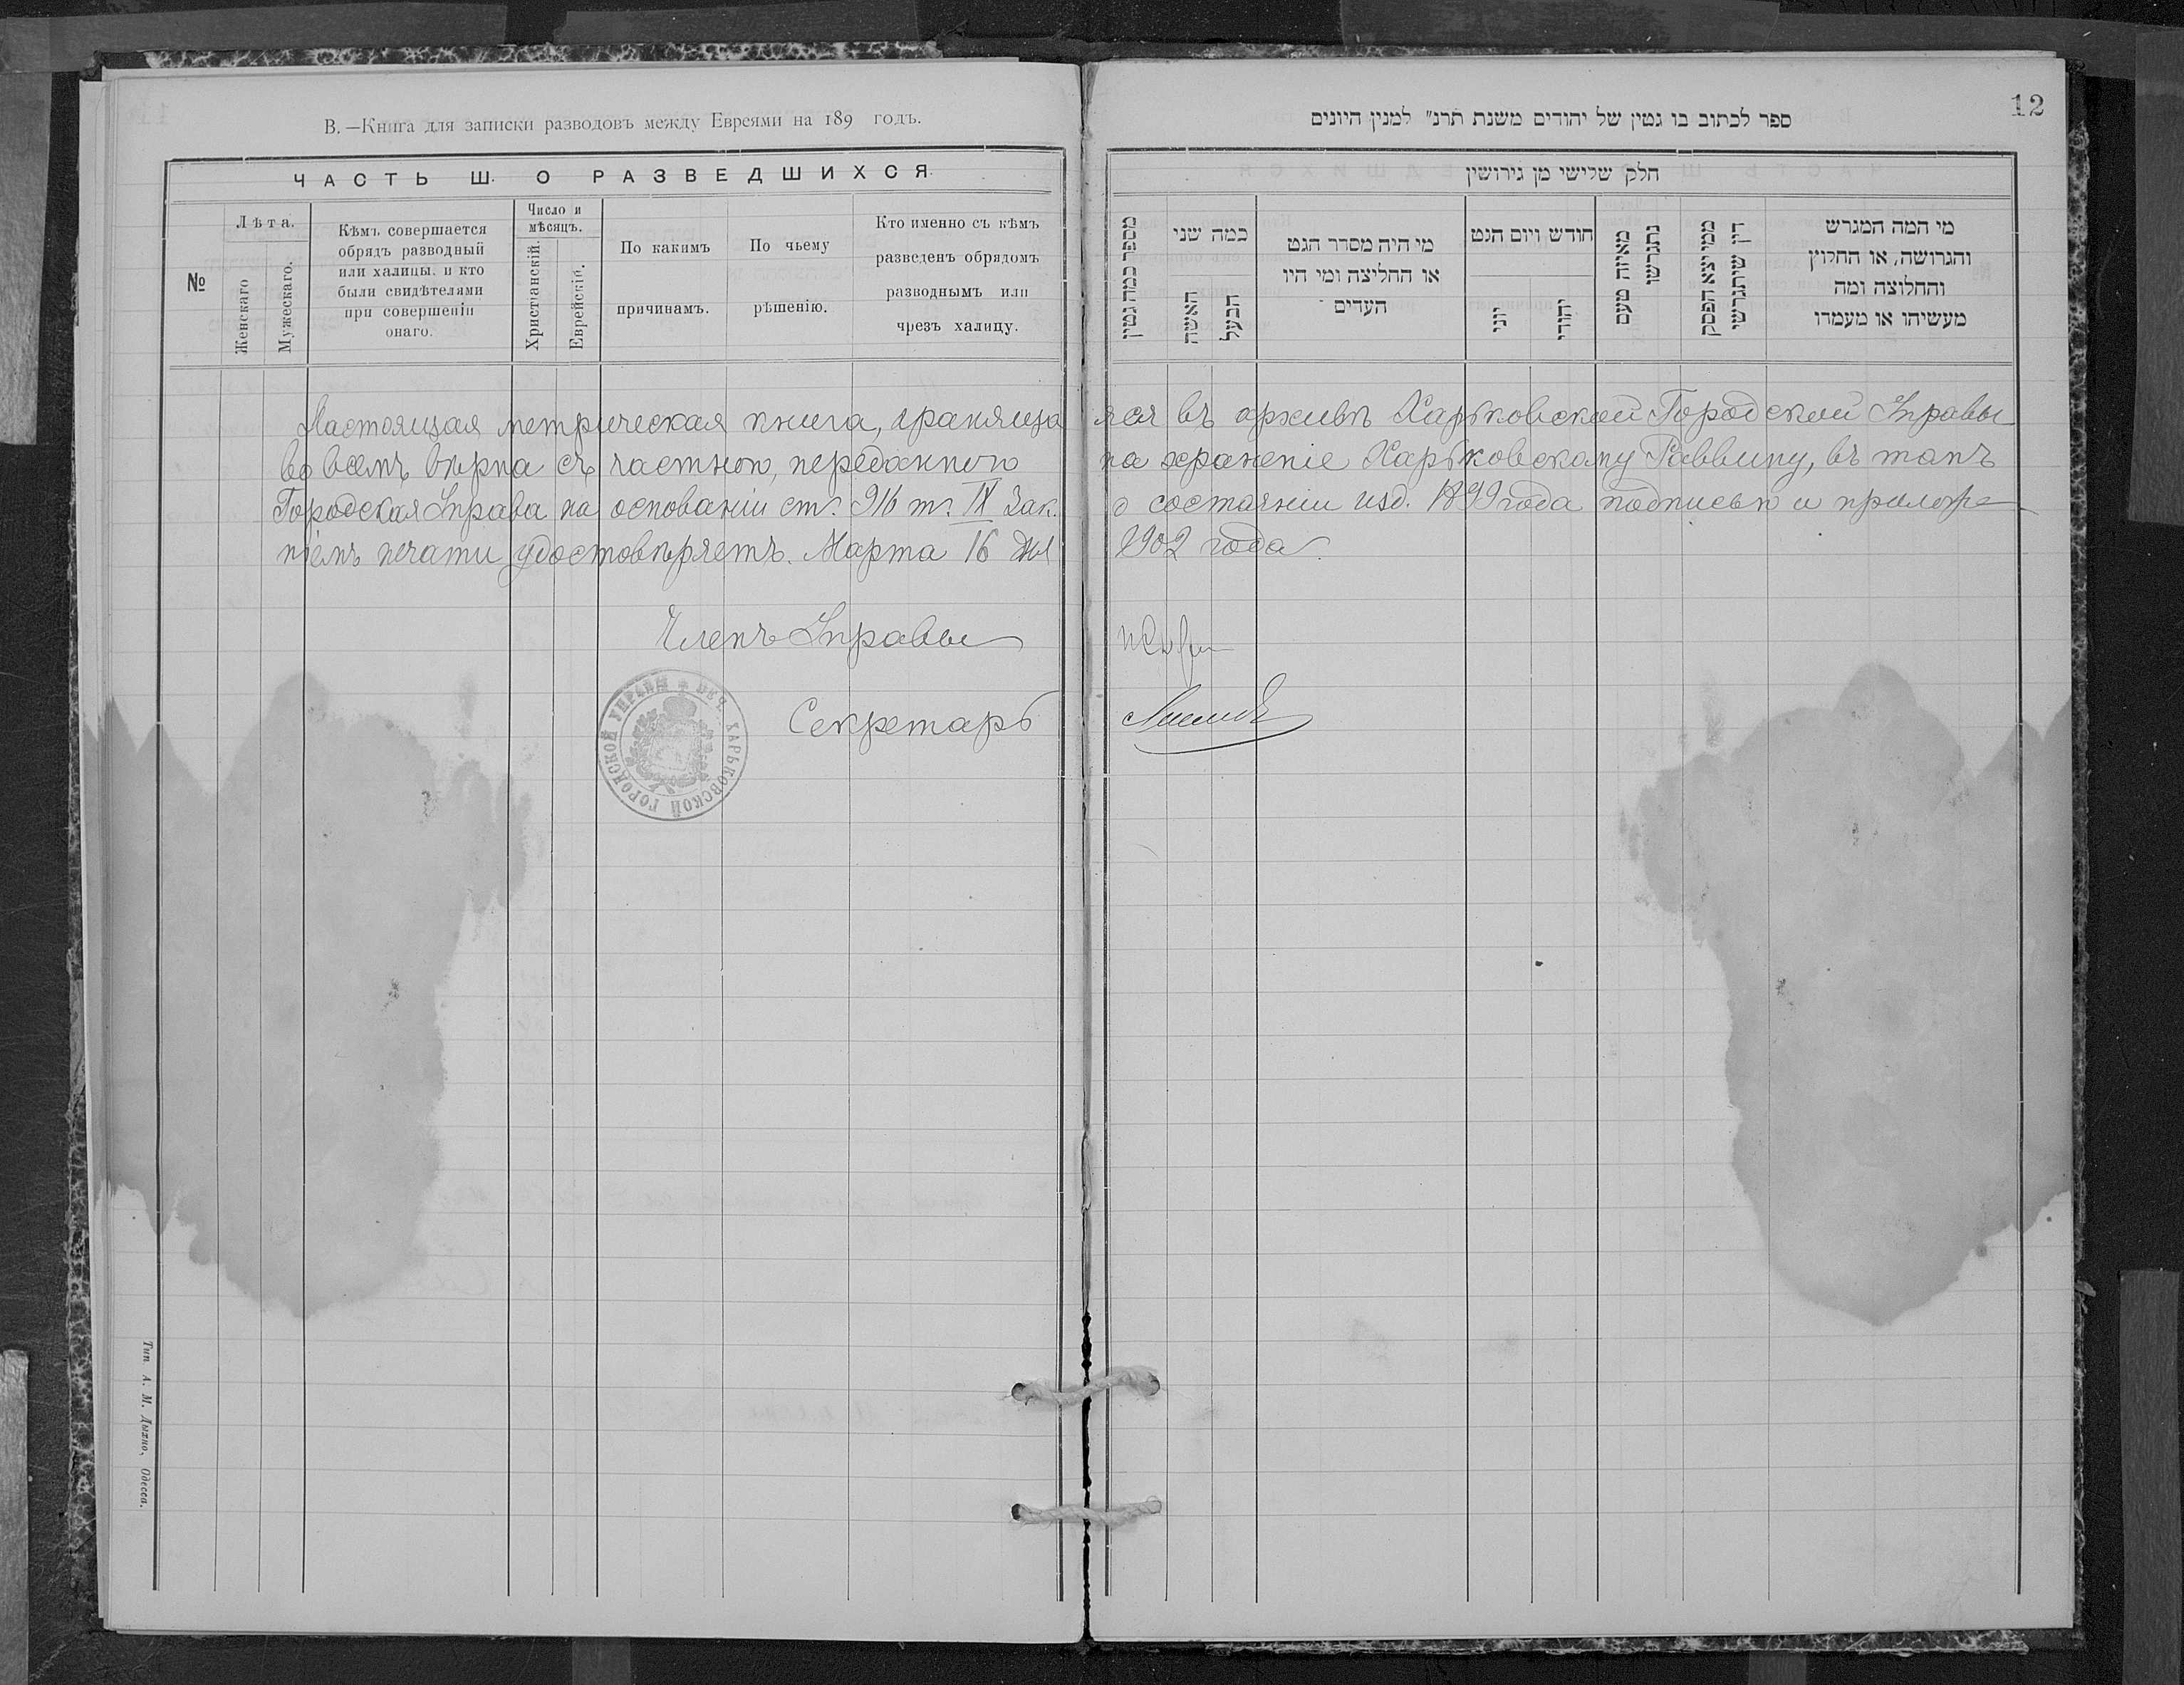 В. —Книга для записки разводовъ между Евреями на 189 годъ.
ЧАСТЬ Ш. О РАЗВЕДШИХСЯ.
№
Лѣта.
Женскаго
Мужескаго.
Кѣмъ совершается
обрядъ разводный
или халицы, и кто
были свидѣтелями
при совершеніи
онаго.
Число и
мѣсяцъ.
Христіанскій.
Еврейскій.
По какимъ
причинамъ.
По чьему
рѣшенію.
Кто именно съ кѣмъ
разведенъ обрядомъ
разводнымъ или
чрезъ халицу.
12
ספר לכתוב בו גטין של יהודים משנת תרנ״ למנין היונים
חלק שלישי מן גירושין
מספר כמה גטין
כמה שני
האשה
הבעל
מי היה מסדר הגט
או החליצה ומי היו
העדים
חודש ויום הגט
יוני
יהודי
מאיזה טעם
נתגרשו
ממי יצא הפסק
דין שיתגרשו
מי המה המגרש
והגרושה, או החלוץ
והחלוצה ומה
מעשיהו או מעמדו
Настоящая метрическая книга, хранящаяся въ архивѣ Харьковской Городской Управы
во всемъ вѣрна съ частною, переданною на храненіе Харьковскому Раввину, въ томъ
Городская Управа на основаніи ст. 916 т. IX Зак. о состояніи изд. 1899 года подписью и приложе
ніемъ печати удостовѣряетъ. Марта 16 дня 1902 года.
Членъ Управы
Секретарь
ПЕЧ. ХАРЬКОВСКОЙ ГОРОДСКОЙ УПРАВЫ
Тип. А. М. Дыхно, Одесса.